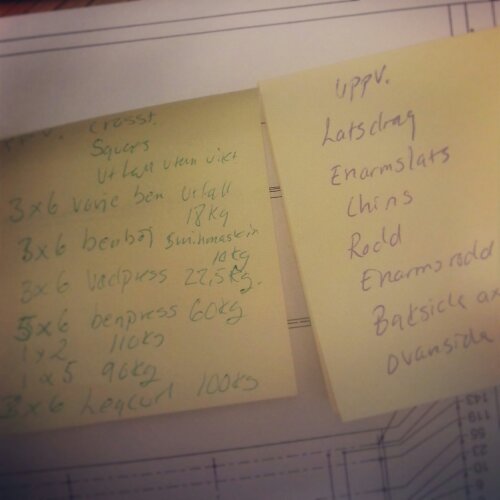 uppv. crosst.
Squats
Utfall utan vikt
3x6 varje ben Utfall
18kg
3x6 benböj
10kg
3x6 Vadpress 22,5kg.
5x6 benpress 60kg
1x2 110kg
1x5 90kg
3x6 Legcurl 100kg
uppv.
Latsdrag
Enarmslats
Chins
Rodd
Enarmsrodd
Baksida ax
Ovansida
143
119
55
23
10